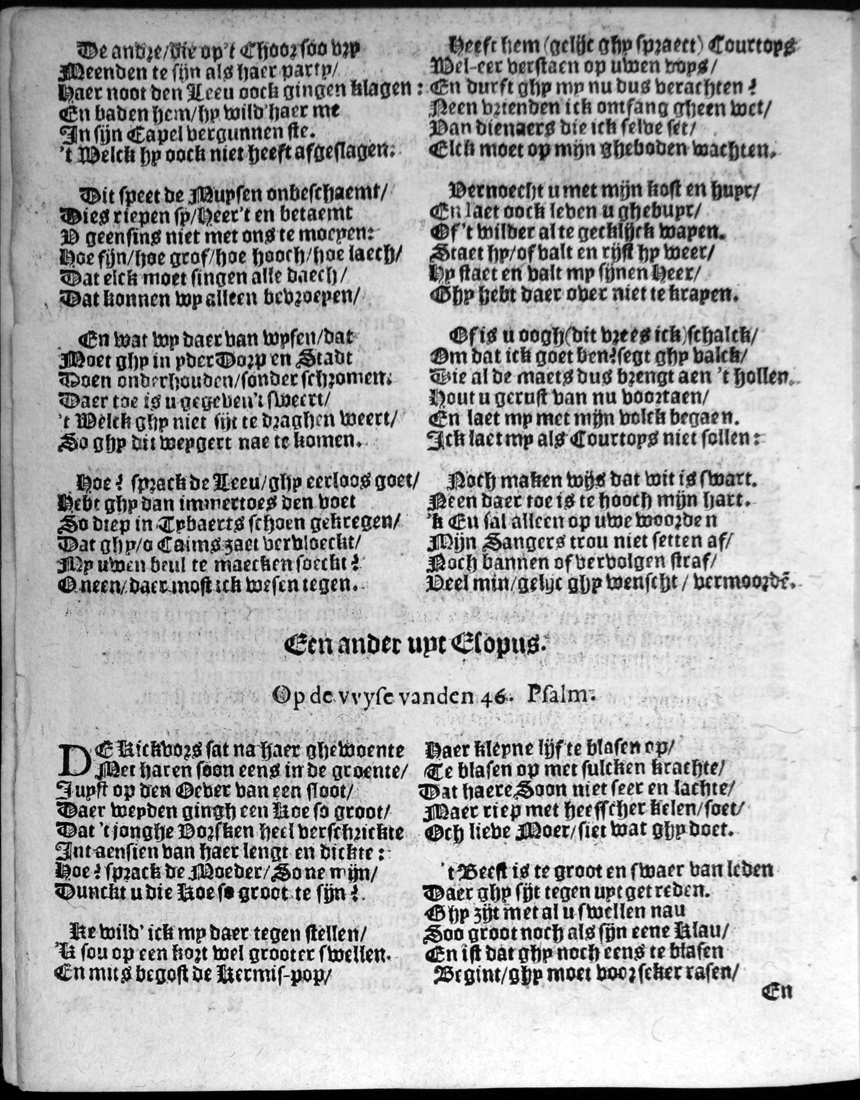 De andre/die op't Choor soo vry
Meenden te sijn als haer party/
Haer noot den Leeu oock gingen klagen:
En baden hem/hy wild'haer me
In sijn Capel vergunnen ste.
't Welck hy oock niet heeft afgeslagen.
Dit speet de Muysen onbeschaemt/
Dies riepen sy/Heer't en betaemt
V geensins niet met ons te moeyen:
Hoe fijn/hoe grof/hoe hooch/hoe laech/
Dat elck moet singen alle daech/
Dat konnen wy alleen bevroepen/
En wat wy daer van wysen/dat
Moet ghy in yder Dorp en Stadt
Doen onderhouden/sonder schromen.
Daer toe is u gegeven't sweert/
't Welck ghy niet sijt te draghen weert/
So ghy dit weygert nae te komen.
Hoe? sprack de Leeu/ghy eerloos goet/
Hebt ghy dan immertoes den voet
So diep in Tybaerts schoen gekregen/
Dat ghy/o Caims zaet vervloeckt/
My uwen beul te maecken soeckt?
O neen/daer most ick wesen tegen.
Heeft hem (gelijc ghy spraect) Courtoys
Wel-eer verstaen op uwen voys/
En durft ghy my nu dus verachten?
Neen vrienden ick ontfang gheen wet/
Van dienaers die ick selve set/
Elck moet op mijn gheboden wachten.
Vernoecht u met mijn kost en huyr/
En laet oock leven u ghebuyr/
Of 't wilder al te gecklijck wapen.
Staet hy/of valt en rijst hy weer/
Hy staet en valt mp sijnen Heer/
Ghy hebt daer over niet te krapen.
Of is u oogh(dit vrees ick)schalck/
Om dat ick goet ben?segt ghy valck/
Die al de maets dus brengt aen 't hollen.
Hout u gerust van nu voortaen/
En laet my met mijn volck begaen.
Ick laet my als Courtoys niet sollen:
Noch maken wijs dat wit is swart.
Neen daer toe is te hooch mijn hart.
'k En sal alleen op uwe woorden
Mijn Sangers trou niet setten af/
Noch bannen of vervolgen straf/
Veel min/gelijc ghy wenscht/vermoordē.
Een ander uyt Esopus.
Op de vvyse vanden 46. Psalm.
DE Kickvors sat na haer ghewoente
Met haren soon eens in de groente/
Juyst op den Oever van een sloot/
Daer weyden gingh een Koe so groot/
Dat 't jonghe Vorsken heel verschrickte
Int aensien van haer lengt en dickte:
Hoe? sprack de Moeder/Sone mijn/
Dunckt u die Koe so groot te sijn?
Ke wild' ick my daer tegen stellen/
'K sou op een kort wel grooter swellen.
En mits begost de Kermis-pop/
Haer kleyne lijf te blasen op/
Te blasen op met sulcken krachte/
Dat haere Soon niet seer en lachte/
Maer riep met heesscher kelen/soet/
Och lieve Moer/siet wat ghy doet.
't Beest is te groot en swaer van leden
Daer ghy sijt tegen uyt getreden.
Ghy zijt met al u swellen nau
Soo groot noch als sijn eene Klau/
En ist dat ghy noch eens te blasen
Begint/ghy moet voorseker rasen/
En